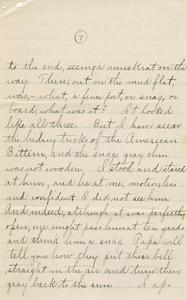 7
to the end, seeing a muskrat on the
way. There, out on the mud flat,
was,—what, a fence post, or snag, or
board, what was it? It looked
like all three. But I have seen
the hiding tricks of the American
Bittern, and the snag gray thing
was not wooden. I stood and stared
at him, and he at me, motionless
and confident I did not see him
And indeed, although it was perfectly
open, one might pass him at ten yards
and think him a snag. Papa will
tell you how they put their bill
straight in the air and turn their
gray back to the sun. I ap-